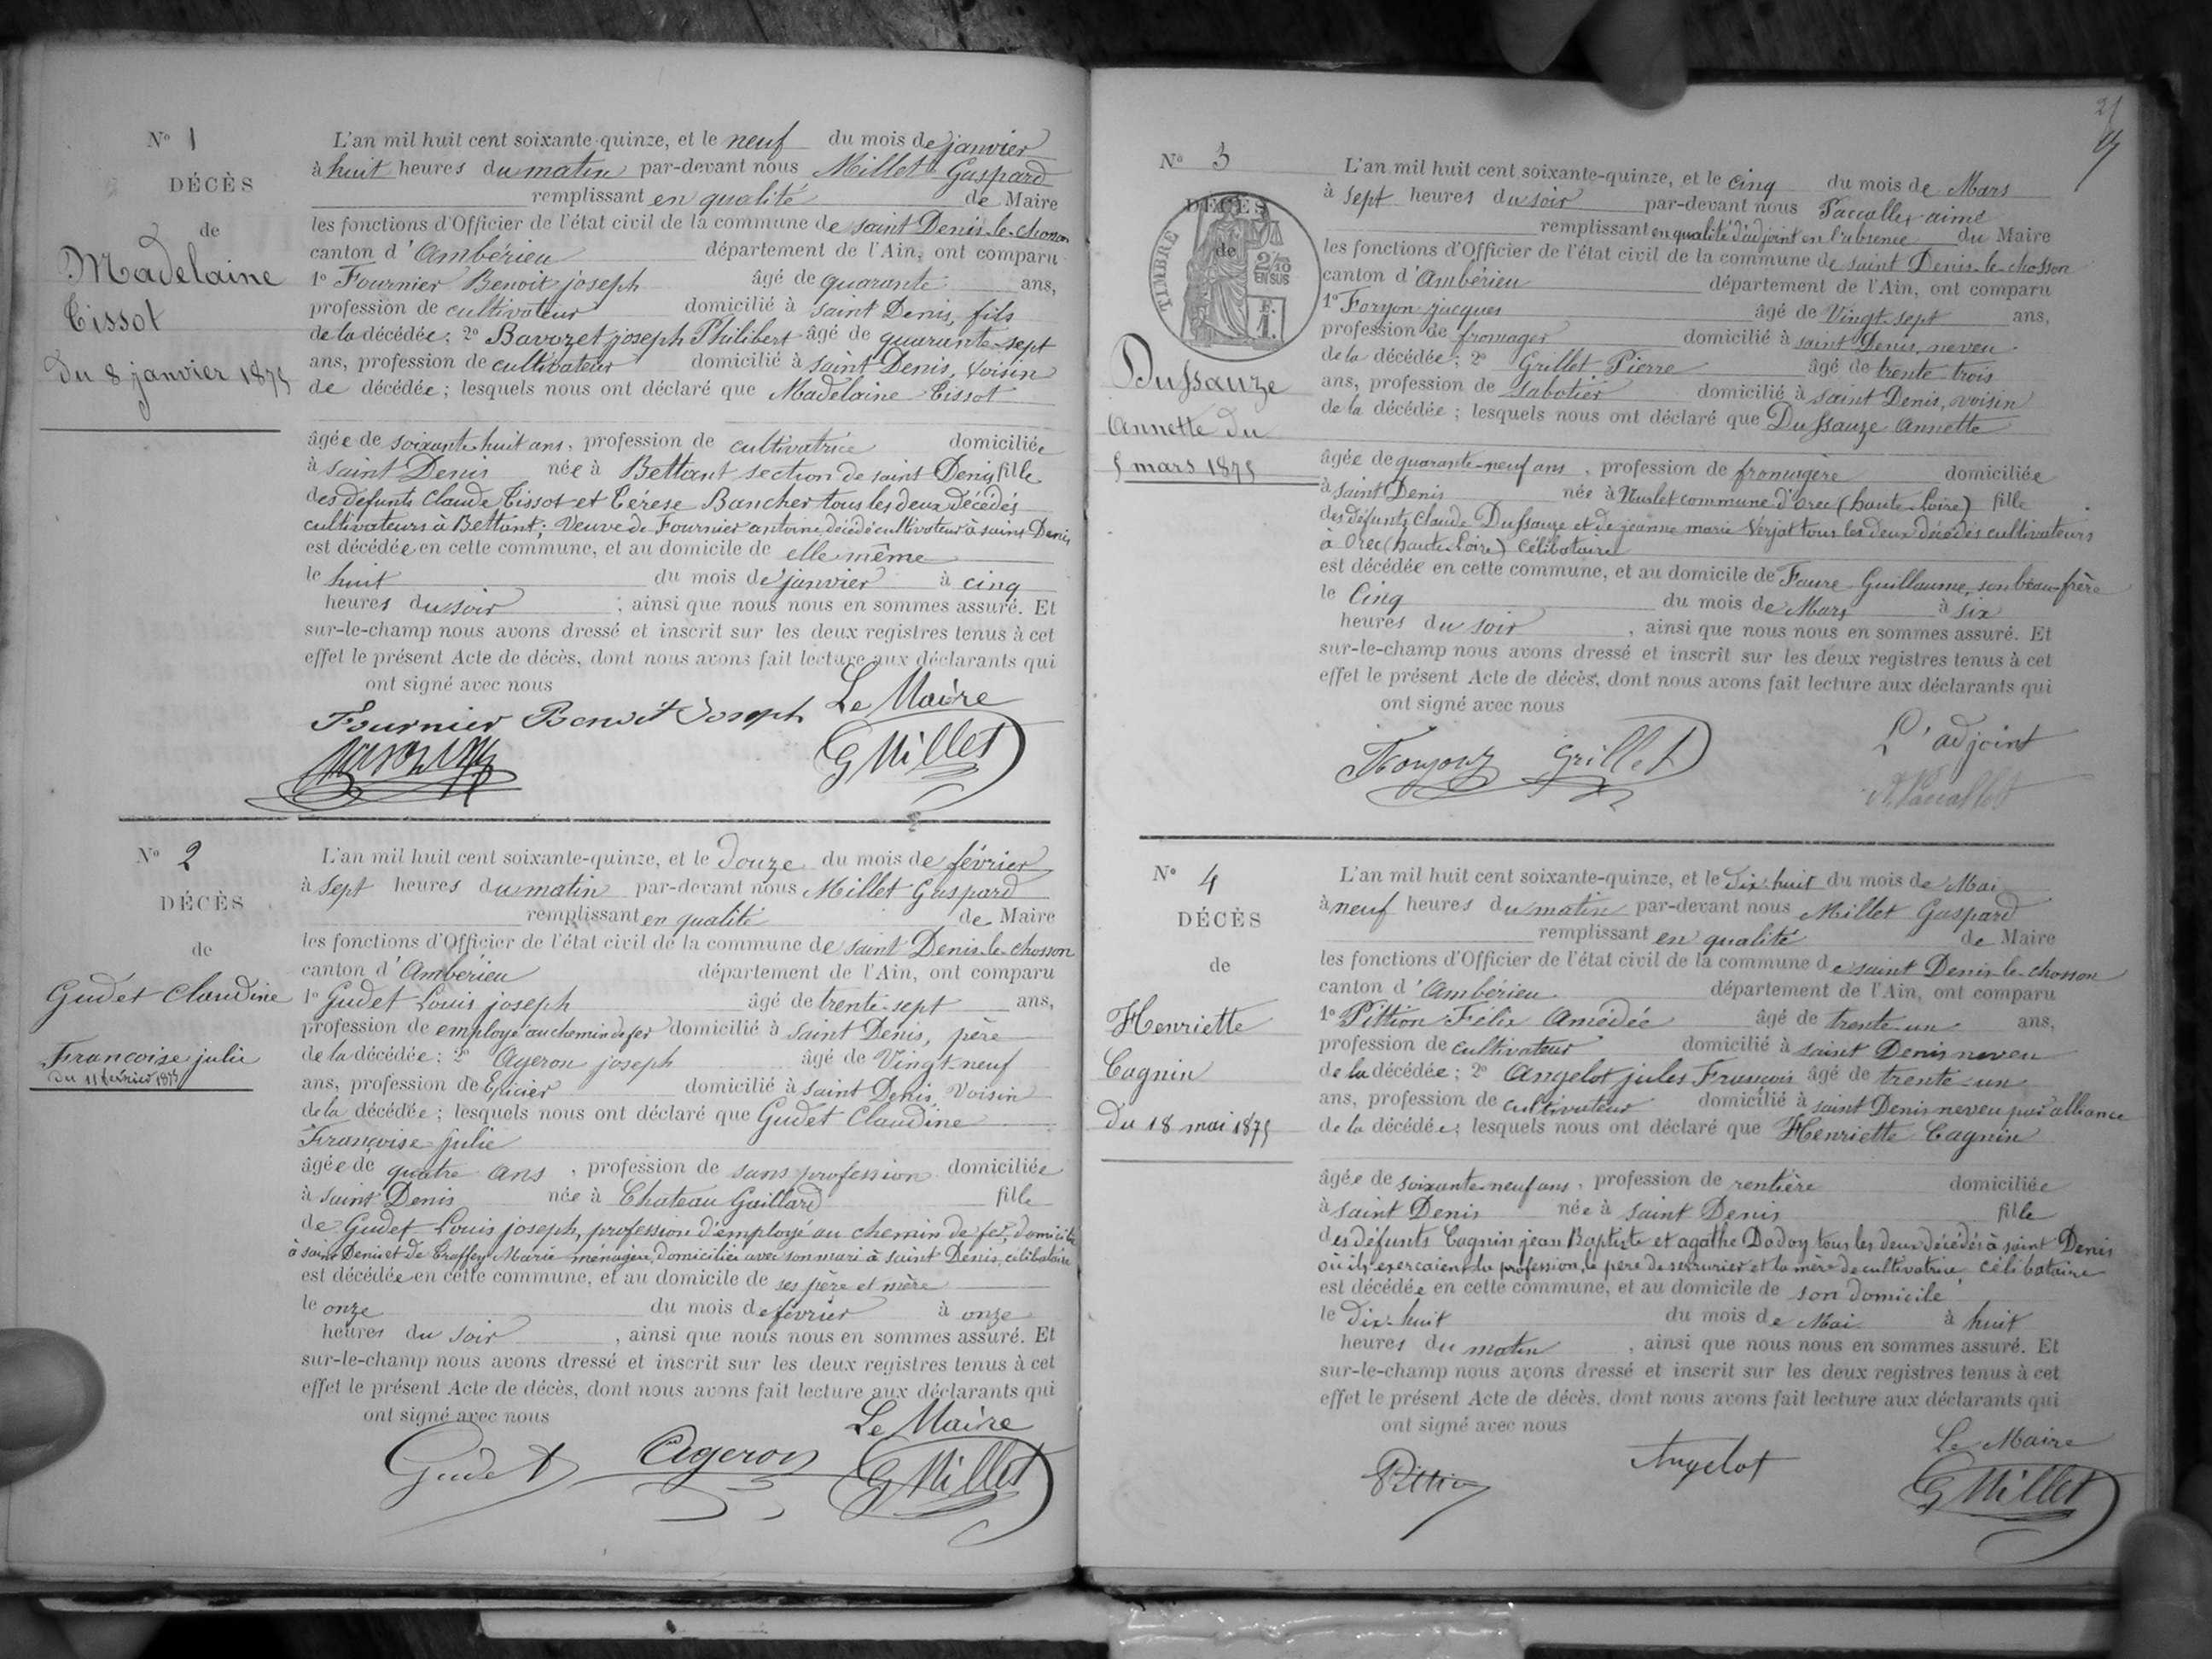 N° 1
DÉCÈS
de
Madelaine
Tissot
du 8 janvier 1875
L'an mil huit cent soixante-quinze, et le neuf du mois de janvier
à huit heures du matin par-devant nous Millet Gaspard
remplissant en qualité de Maire
les fonctions d'Officier de l'état civil de la commune de saint Denis-le-chosson
canton d'Ambérieu département de l'Ain, ont comparu
1° Fournier Benoit joseph âgé de quarante ans,
profession de cultivateur domicilié à saint Denis, fils
de la décédée; 2° Bavozet joseph Philibert âgé de quarante-sept
ans, profession de cultivateur domicilié à saint Denis, voisin
de décédée; lesquels nous ont déclaré que Madelaine Tissot
âgée de soixante huit ans, profession de cultivatrice domiciliée
à saint Denis née à Bettant section de saint Denis fille
des défunts Claude Tissot et Térese Bancher tous les deux décédés
cultivateurs à Bettant; Veuve de Fournier antoine décédé cultivateur à saint Denis
est décédée en cette commune, et au domicile de elle même
le huit du mois de janvier à cinq
heures du soir ; ainsi que nous nous en sommes assuré. Et
sur-le-champ nous avons dressé et inscrit sur les deux registres tenus à cet
effet le présent Acte de décès, dont nous avons fait lecture aux déclarants qui
ont signé avec nous
Le Maire
Fournier Benoit Joseph
G Millet
N° 2
DÉCÈS
de
Gudet Claudine
Françoise julie
du 11 février 1875
L'an mil huit cent soixante-quinze, et le douze du mois de février
à sept heures du matin par-devant nous Millet Gaspard
remplissant en qualité de Maire
les fonctions d'Officier de l'état civil de la commune de saint Denis-le-chosson
canton d'Ambérieu département de l'Ain, ont comparu
1° Gudet Louis joseph âgé de trente-sept ans,
profession de employé au chemin de fer domicilié à saint Denis, père
de la décédée; 2° Ageron joseph âgé de Vingt neuf
ans, profession de Epicier domicilié à saint Denis, Voisin
de la décédée; lesquels nous ont déclaré que Gudet Claudine
Françoise julie
âgée de quatre ans, profession de sans profession domiciliée
à saint Denis née à Chateau Gaillard fille
de Gudet Louis joseph, profession d'employé au chemin de fer, domicilié
à saint Denis et de Traffey Marie ménagère, domiciliée avec son mari à saint Denis, célibataire
est décédée en cette commune, et au domicile de ses père et mère
le onze du mois de février à onze
heures du soir , ainsi que nous nous en sommes assuré. Et
sur-le-champ nous avons dressé et inscrit sur les deux registres tenus à cet
effet le présent Acte de décès, dont nous avons fait lecture aux déclarants qui
ont signé avec nous
Le Maire
Gudet Ageron G Millet
21
N° 3
DÉCÈS
de
TIMBRE
2/10
EN SUS
F.
1.
Dussauze
Annette du
5 mars 1875
L'an mil huit cent soixante-quinze, et le cinq du mois de Mars
à sept heures du soir par-devant nous Paccallet aimé
remplissant en qualité d'adjoint en l'absence du Maire
les fonctions d'Officier de l'état civil de la commune de saint Denis-le-chosson
canton d'Ambérieu département de l'Ain, ont comparu
1° Foryon jacques âgé de Vingt-sept ans,
profession de fromager domicilié à saint Denis, neveu
de la décédée; 2° Grillet Pierre âgé de trente-trois
ans, profession de Sabotier domicilié à saint Denis, voisin
de la décédée; lesquels nous ont déclaré que Dussauze Annette
âgée de quarante-neuf ans, profession de fromagère domiciliée
à saint Denis née à commune d'Orec (haute-Loire) fille
des défunts Claude Dussauze et de jeanne marie Verjat tous les deux décédés cultivateurs
à Orec (haute-Loire) célibataire
est décédée en cette commune, et au domicile de Faure Guillaume, son beau-frère
le Cinq du mois de Mars à six
heures du soir , ainsi que nous nous en sommes assuré. Et
sur-le-champ nous avons dressé et inscrit sur les deux registres tenus à cet
effet le présent Acte de décès, dont nous avons fait lecture aux déclarants qui
ont signé avec nous
L'adjoint
Grillet
A. Paccallet
N° 4
DÉCÈS
de
Henriette
Cagnin
du 18 mai 1875
L'an mil huit cent soixante-quinze, et le Dix-huit du mois de Mai
à neuf heures du matin par-devant nous Millet Gaspard
remplissant en qualité de Maire
les fonctions d'Officier de l'état civil de la commune de saint Denis-le-chosson
canton d'Ambérieu département de l'Ain, ont comparu
1° Pittion Félix Amédée âgé de trente-un ans,
profession de cultivateur domicilié à saint Denis neveu
de la décédée; 2° Angelot jules François âgé de trente-un
ans, profession de cultivateur domicilié à saint Denis neveu par alliance
de la décédée; lesquels nous ont déclaré que Henriette Cagnin
âgée de soixante-neuf ans, profession de rentière domiciliée
à saint Denis née à saint Denis fille
des défunts Cagnin jean Baptiste et agathe Dodoy tous les deux décédés à saint Denis
où ils exercaient la profession, le père de serrurier et la mère de cultivatrice célibataire
est décédée en cette commune, et au domicile de son domicile
le Dix-huit du mois de Mai à huit
heures du matin , ainsi que nous nous en sommes assuré. Et
sur-le-champ nous avons dressé et inscrit sur les deux registres tenus à cet
effet le présent Acte de décès, dont nous avons fait lecture aux déclarants qui
ont signé avec nous
Le Maire
Pittion Angelot G Millet